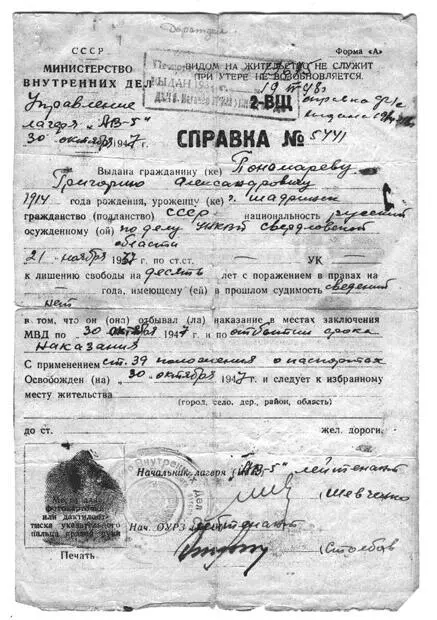 СССР
Форма „А"
МИНИСТЕРСТВО
ВНУТРЕННИХ ДЕЛ
ВИДОМ НА ЖИТЕЛЬСТВО НЕ СЛУЖИТ
ПРИ УТЕРЕ НЕ ВОЗОБНОВЛЯЕТСЯ.
Управление
лагеря „АВ-5"
30 октября 1947
2-ВЩ
СПРАВКА № 5441
Выдана гражданину (ке) Пономареву
Григорию Александровичу
1914 года рождения, уроженцу (ке) г. Шадринск
гражданство (подданство) СССР национальность русский
осужденному (ой) по делу УНКВД Свердловской
области
21 ноября 1937 по ст.ст. — УК —
к лишению свободы на десять лет с поражением в правах на
— года, имеющему (ей) в прошлом судимость сведений
нет
в том, что он (она) отбывал (ла) наказание в местах заключения
МВД по „30 октября 1947 г. и по отбытии срока
наказания
С применением ст. 39 положения о паспортах
Освобожден (на) „30 октября 1947 г. и следует к избранному
месту жительства
(город, село, дер., район, область)
до ст. жел. дороги.
Место для
фотокарточки
или дактилот-
тиска указательного
пальца правой руки
Печать
Начальник лагеря „АВ-5" лейтенант
Шевченко
Нач. ОУРЗ лейтенант
(Столбов